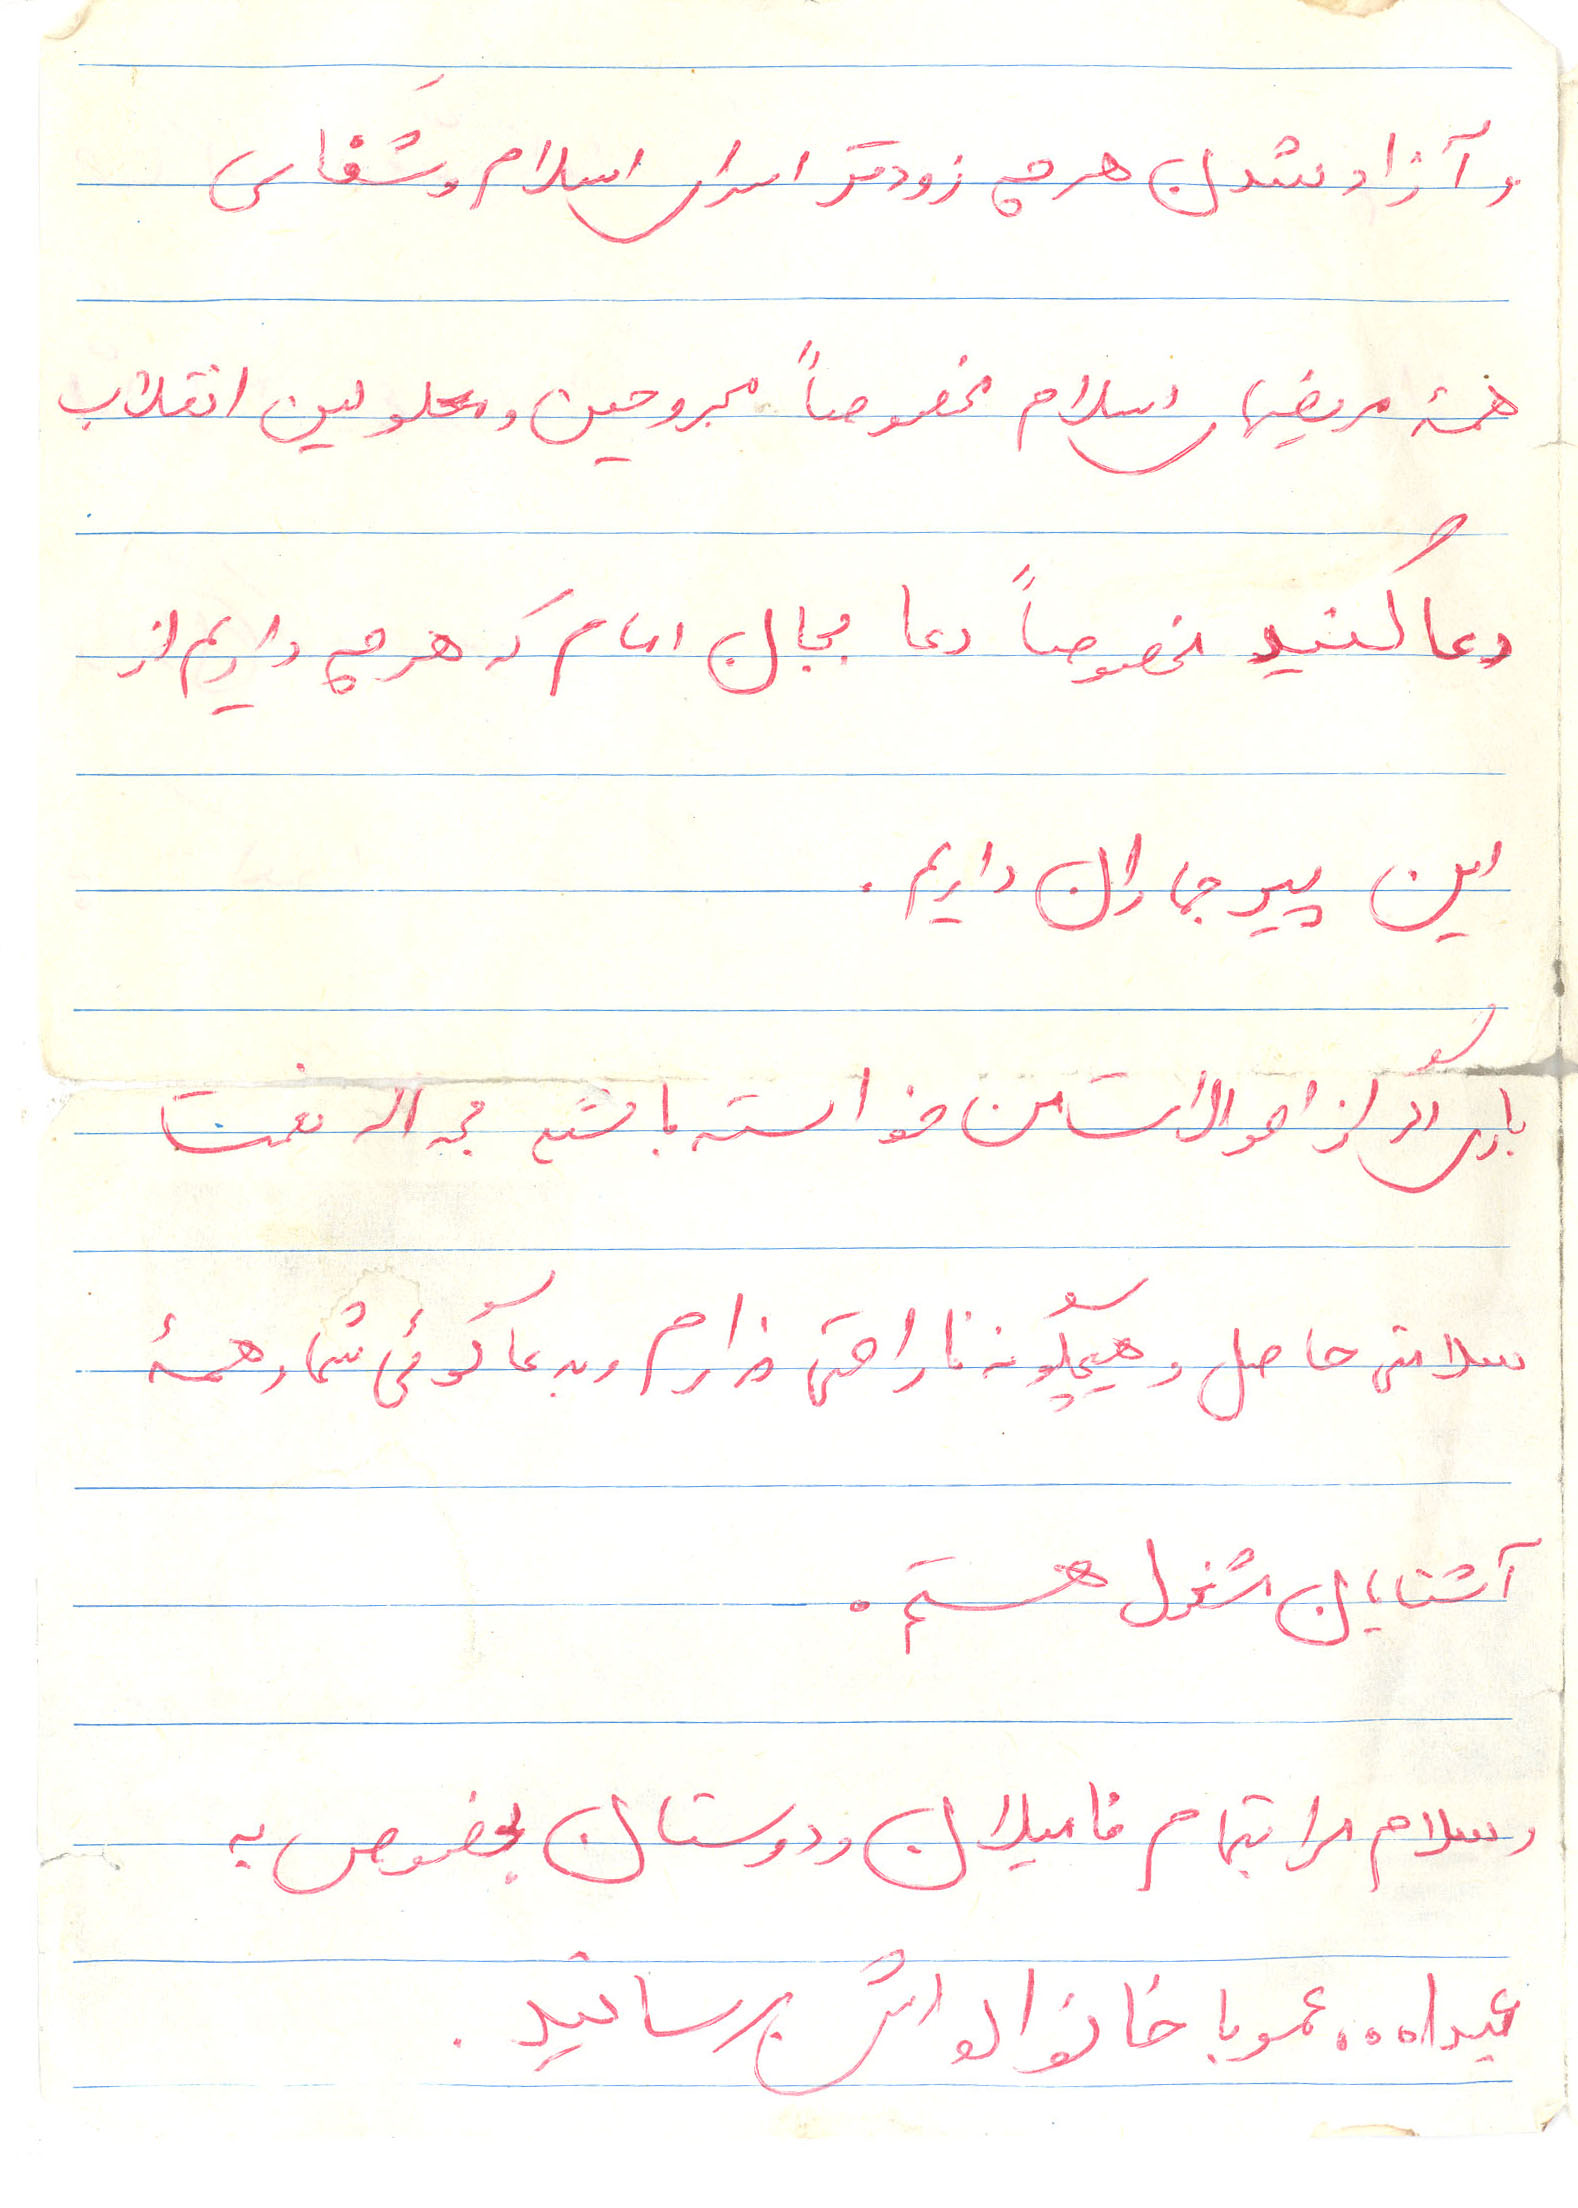 و آزاد شدن هر چه زودتر اسرای اسلام و شفای
همهٔ مریضهای اسلام مخصوصاً مجروحین و معلولین انقلاب
دعا کنید مخصوصاً دعا بجان امام که هر چه داریم از
این پیر جماران داریم .
باری اگر از احوالات من خواسته باشید بحمدالله نعمت
سلامتی حاصل و هیچگونه ناراحتی ندارم و بدعاگوئی شما و همهٔ
آشنایان مشغول هستم .
و سلام مرا بتمام فامیلان و دوستان بخصوص به
عبدا... عمو با خانواده‌اش برسانید .